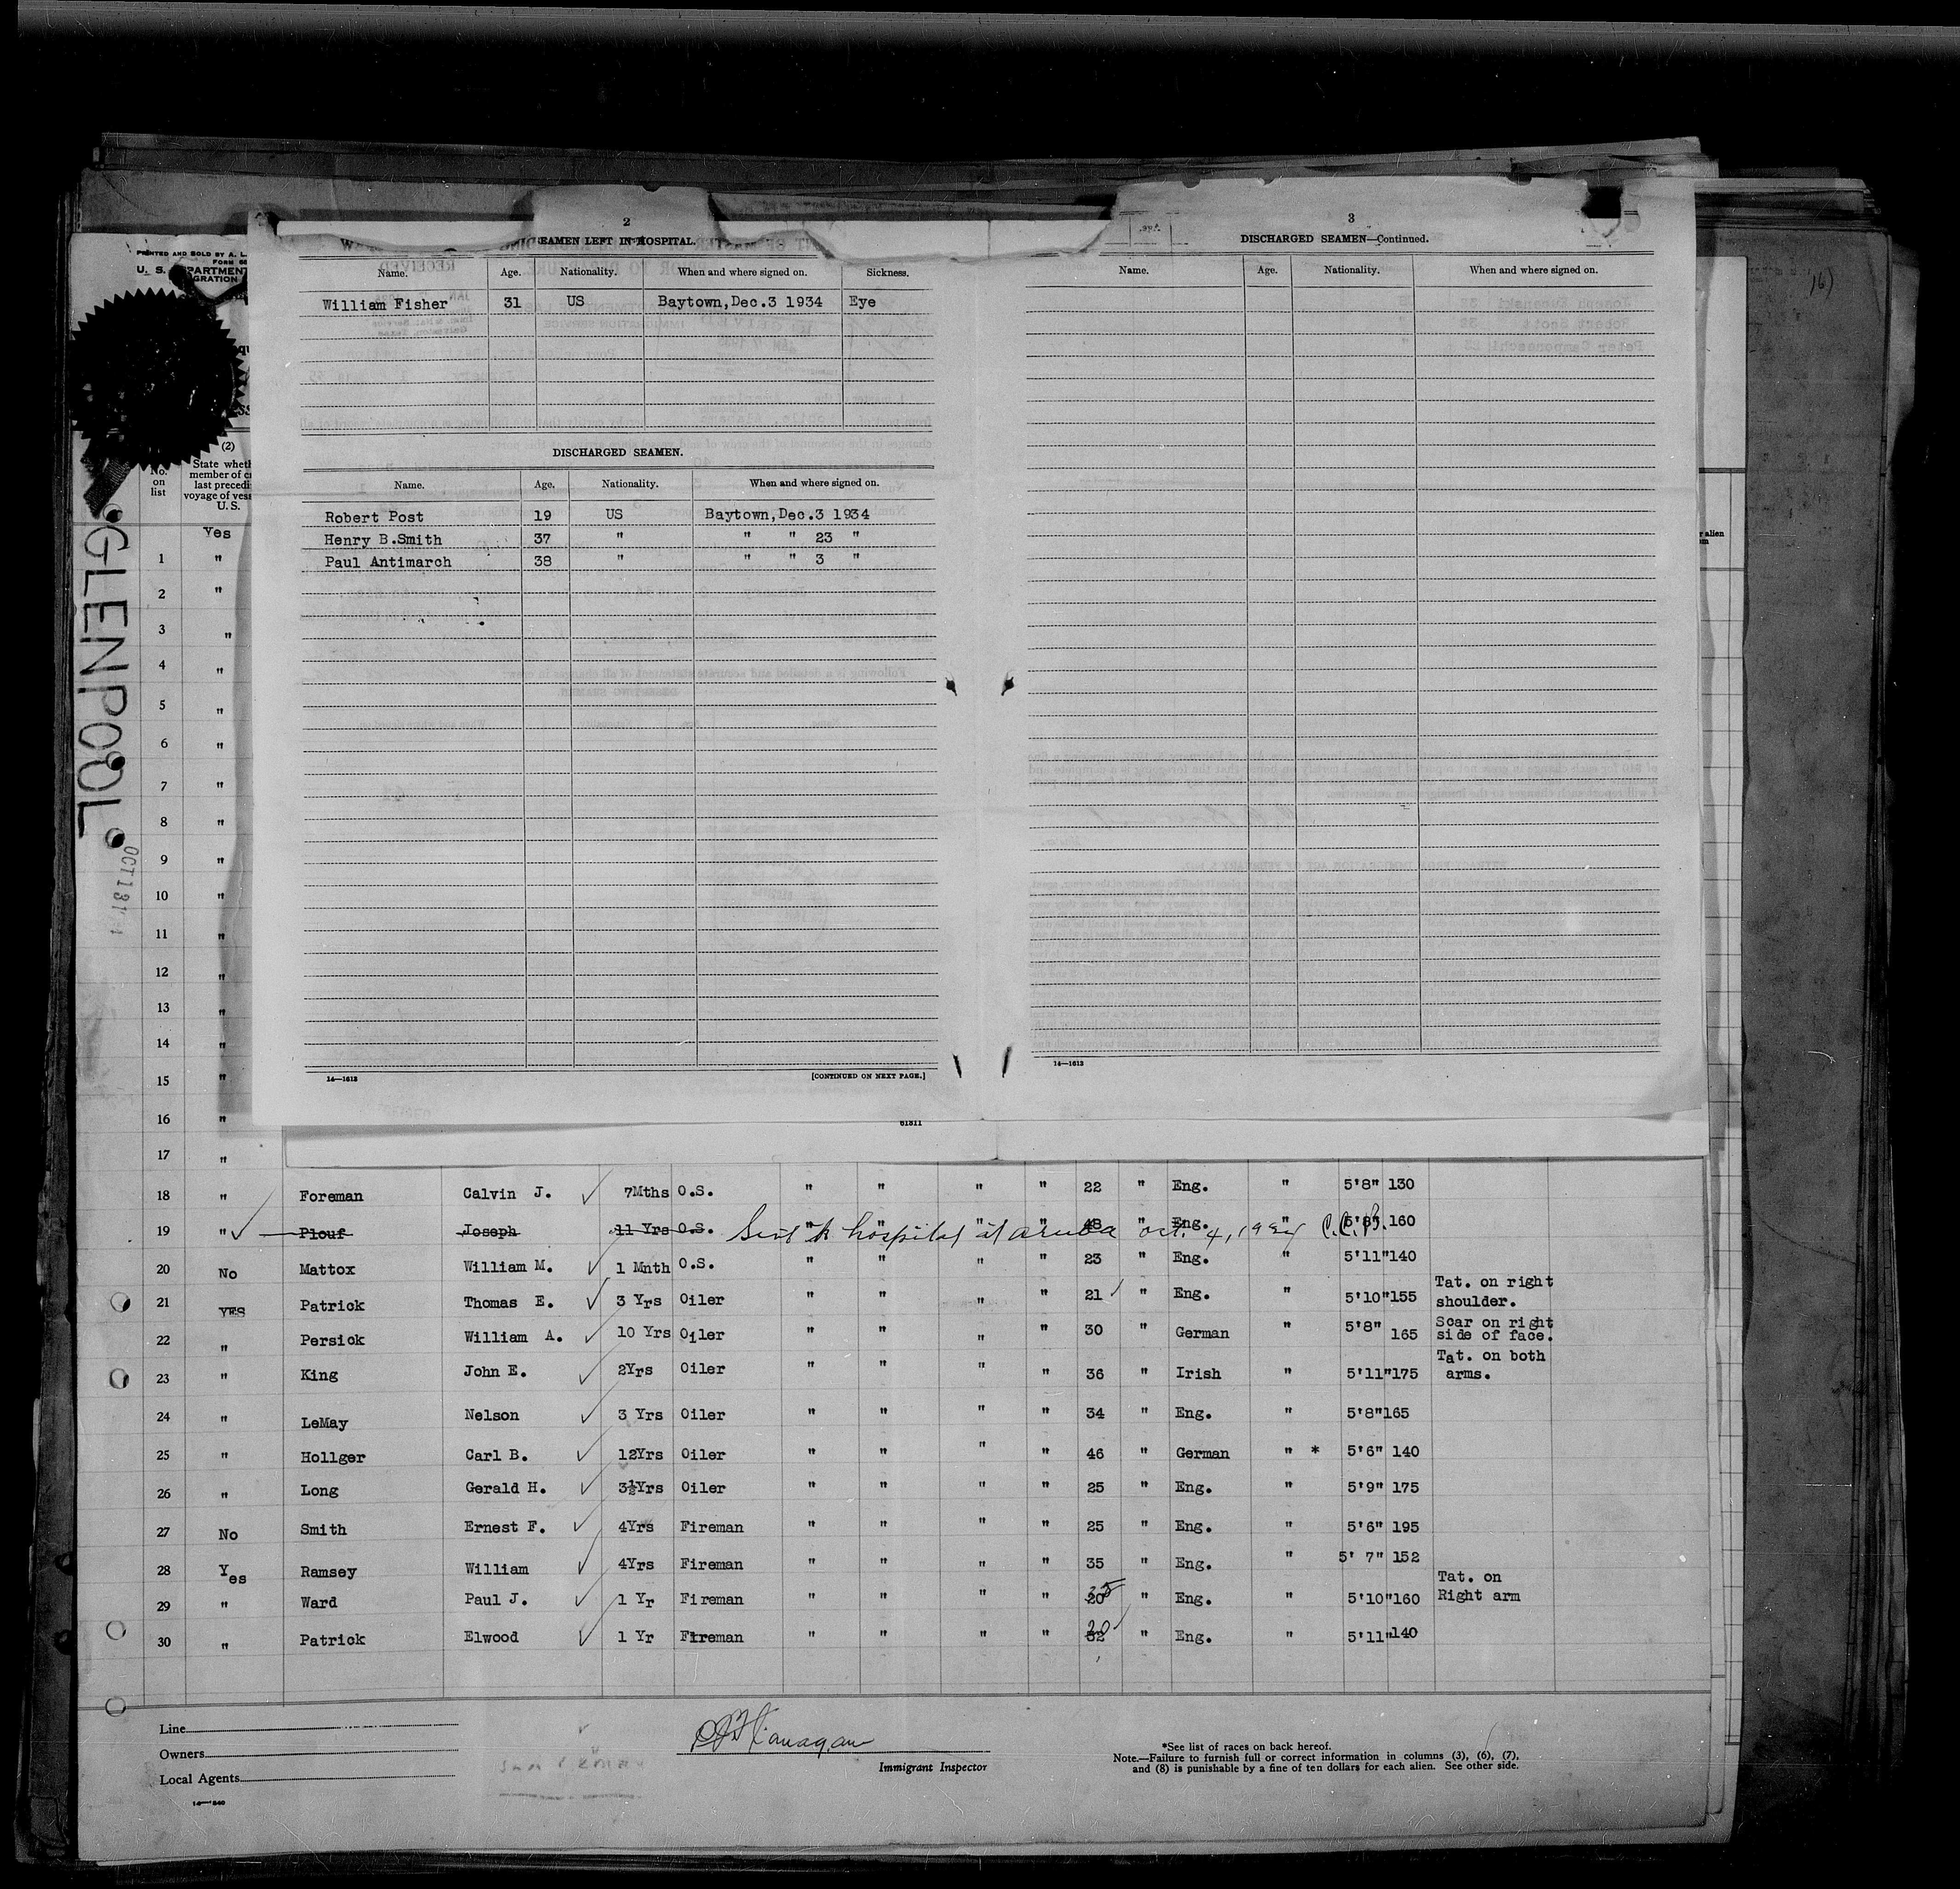 2
SEAMEN LEFT IN HOSPITAL.
Name. Age. Nationality. When and where signed on. Sickness.
William Fisher 31 US Baytown,Dec.3 1934 Eye
DISCHARGED SEAMEN.
Name. Age. Nationality. When and where signed on.
Robert Post 19 US Baytown,Dec.3 1934
Henry B.Smith 37 " " " 23 "
Paul Antimarch 38 " " " 3 "
14—1613 [CONTINUED ON NEXT PAGE.]
3
DISCHARGED SEAMEN—Continued.
Name. Age. Nationality. When and where signed on.
14—1613
PRINTED AND SOLD BY A. L.
U. S.
(2)
No. on list
State wheth
member of c
last precedi
voyage of vess
U. S.
GLENPOOL
Yes
1 "
2 "
3 "
4 "
5 "
6 "
7 "
8 "
9 "
10 "
11 "
12 "
13 "
14 "
15 "
16 "
61311
17 "
18 " Foreman Calvin J. 7Mths O.S. " " " " 22 " Eng. " 5'8" 130
19 " Plouf Joseph 11 Yrs O.S. " " " " 48 " Eng. " 5'8" 160
Sent to hospital at Aruba Oct. 4, 1934
20 No Mattox William M. 1 Mnth O.S. " " " " 23 " Eng. " 5'11" 140
21 YES Patrick Thomas E. 3 Yrs Oiler " " " " 21 " Eng. " 5'10" 155 Tat. on right shoulder.
22 " Persick William A. 10 Yrs Oiler " " " " 30 " German " 5'8" 165 Scar on right side of face.
23 " King John E. 2Yrs Oiler " " " " 36 " Irish " 5'11" 175 Tat. on both arms.
24 " LeMay Nelson 3 Yrs Oiler " " " " 34 " Eng. " 5'8" 165
25 " Hollger Carl B. 12Yrs Oiler " " " " 46 " German " * 5'6" 140
26 " Long Gerald H. 3½Yrs Oiler " " " " 25 " Eng. " 5'9" 175
27 No Smith Ernest F. 4Yrs Fireman " " " " 25 " Eng. " 5'6" 195
28 Yes Ramsey William 4Yrs Fireman " " " " 35 " Eng. " 5' 7" 152
29 " Ward Paul J. 1 Yr Fireman " " " " 20 " Eng. " 5'10" 160 Tat. on Right arm
30 " Patrick Elwood 1 Yr Fireman " " " " 20 " Eng. " 5'11" 140
Line
Owners
Local Agents
Immigrant Inspector
*See list of races on back hereof.
Note.—Failure to furnish full or correct information in columns (3), (6), (7),
and (8) is punishable by a fine of ten dollars for each alien. See other side.